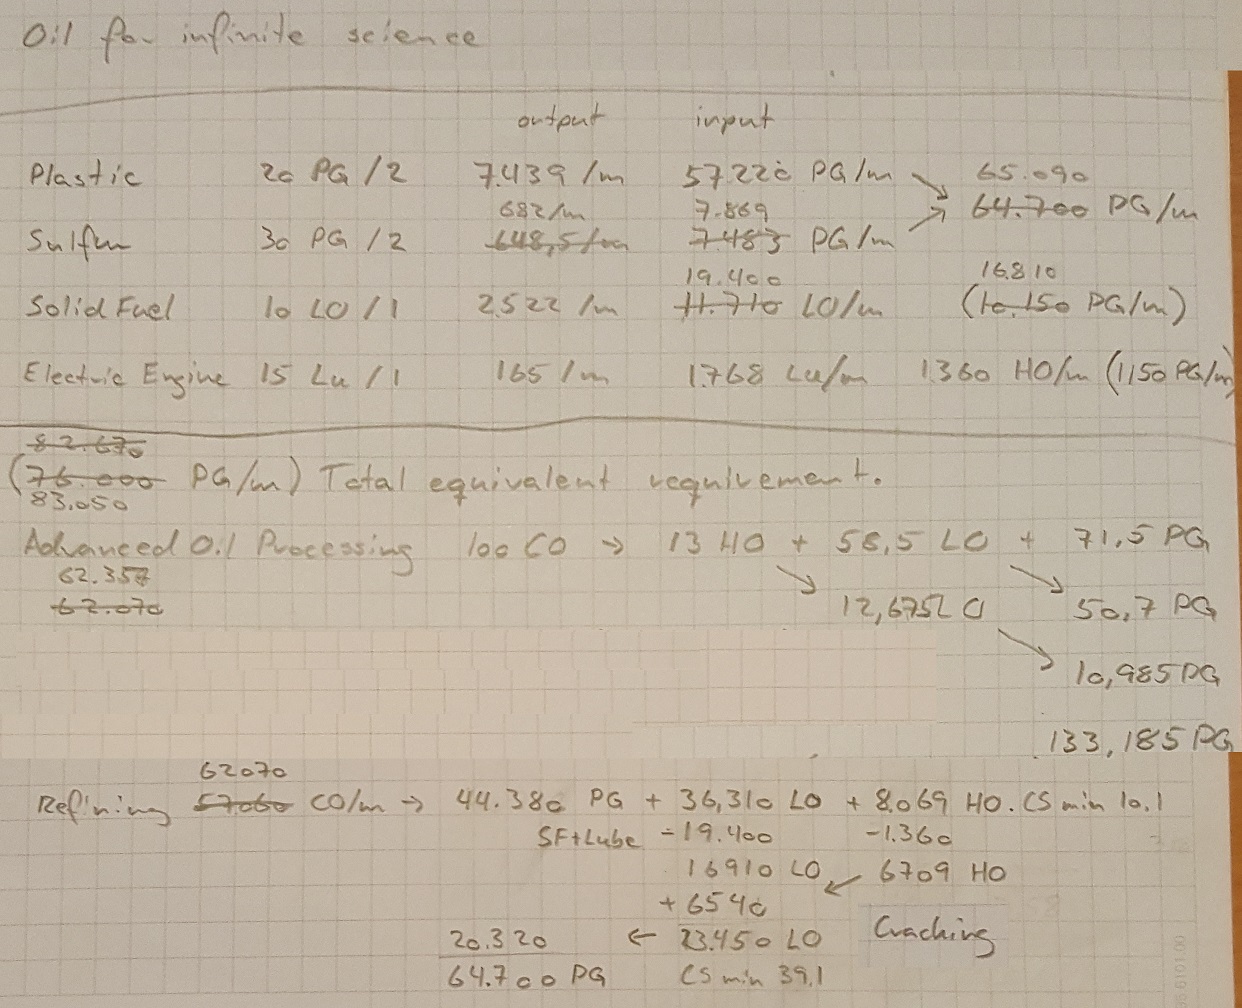 Oil for infinite science
output input
Plastic 20 PG /2 7.439 /m 57.220 PG/m 65.090
682/m 7.869 64.700 PG/m
Sulfur 30 PG /2 648,5/m 7.483 PG/m
19.400 16.810
Solid Fuel 10 LO /1 2.522 /m 11.710 LO/m (10.150 PG/m)
Electric Engine 15 Lu /1 165 /m 1.768 Lu/m 1360 HO/m (1150 PG/m)
82.670
(76.000 PG/m) Total equivalent requirement.
83.050
Advanced Oil Processing 100 CO → 13 HO + 58,5 LO + 71,5 PG
62.357
62.070 12,675 LO 50,7 PG
10,985 PG
133,185 PG
62070
Refining 57.060 CO/m → 44.380 PG + 36,310 LO + 8.069 HO. CS min 10,1
SF+Lube -19.400 -1.360
16910 LO ↙ 6709 HO
+6540
20.320 ← 23.450 LO Cracking
64.700 PG CS min 39,1